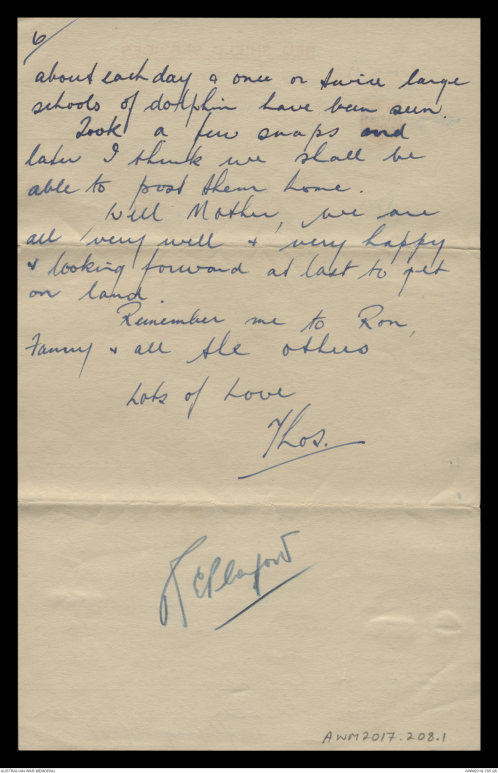 6
about each day & once or twice large
schools of dolphin have been seen.
Took a few snaps and
later I think we shall be
able to post them home.
Well Mother, we are
all very well & very happy
& looking forward at last to get
on land.
Remember me to Ron,
Fanny & all the others
Lots of Love
Thos.
Playford
AWM2017.208.1
AUSTRALIAN WAR MEMORIAL